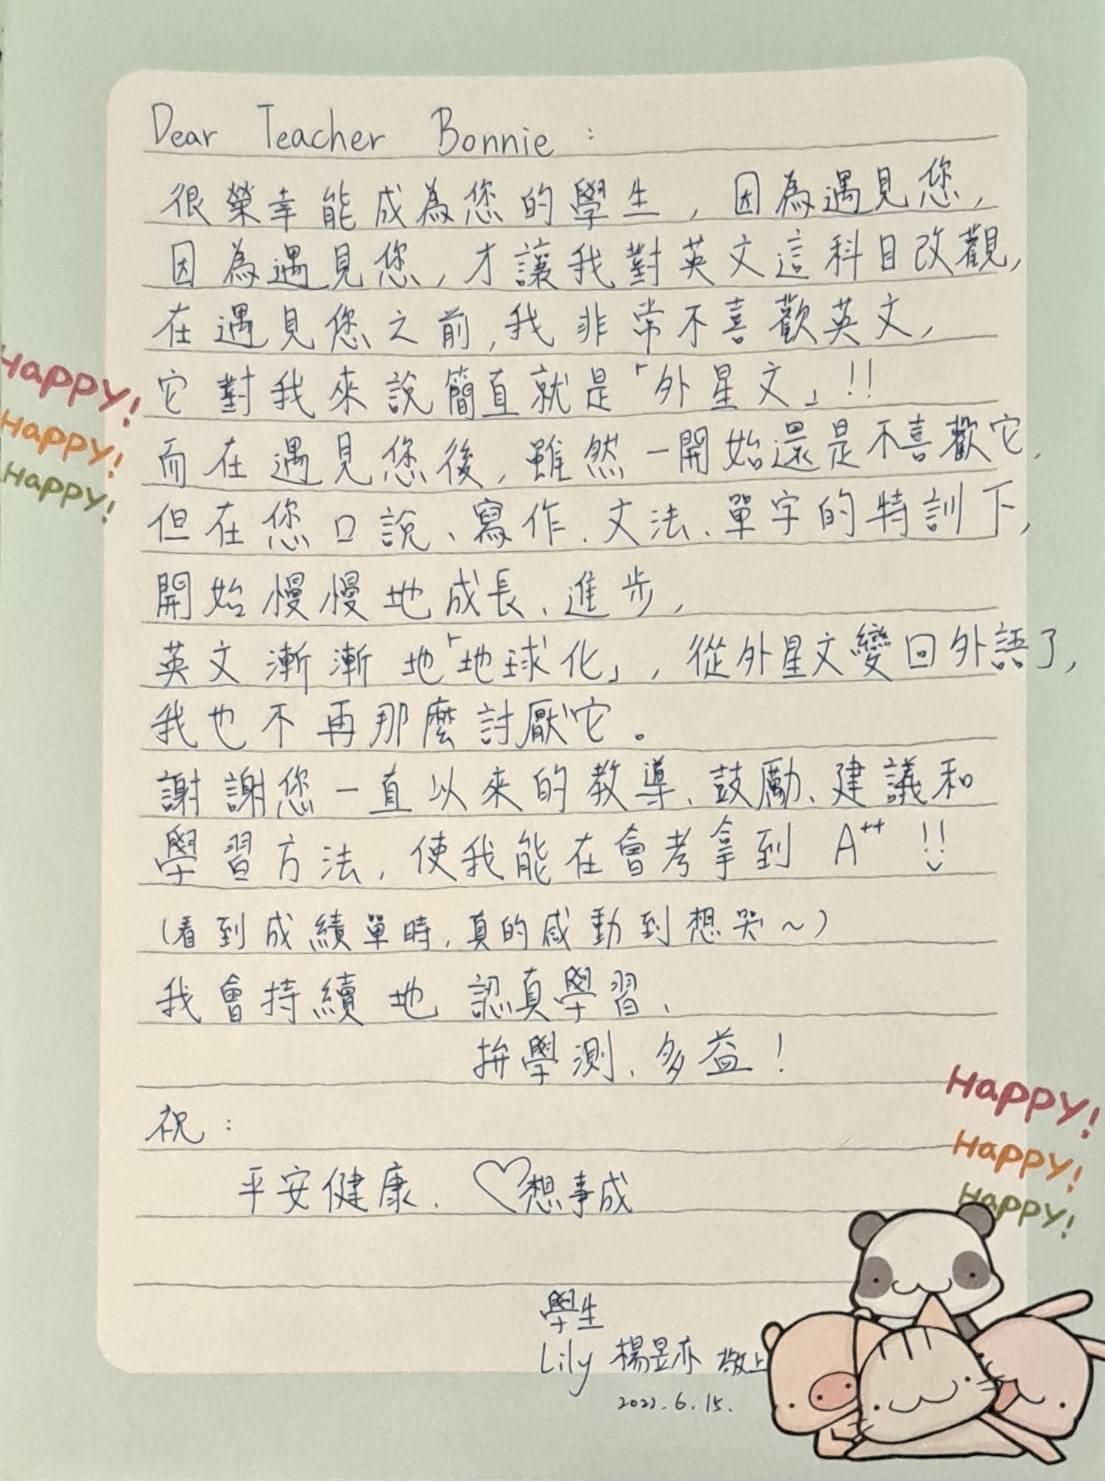 Dear Teacher Bonnie：
很榮幸能成為您的學生，因為遇見您，
因為遇見您，才讓我對英文這科目改觀，
在遇見您之前，我非常不喜歡英文，
它對我來說簡直就是「外星文」!!
而在遇見您後，雖然一開始還是不喜歡它，
但在您口說、寫作、文法、單字的特訓下，
開始慢慢地成長、進步，
英文漸漸地「地球化」，從外星文變回外語了，
我也不再那麼討厭它。
謝謝您一直以來的教導、鼓勵、建議和
學習方法，使我能在會考拿到 A++ !!
(看到成績單時，真的感動到想哭~)
我會持續地認真學習、
拚學測、多益！
祝：
平安健康、♡想事成
學生
Lily 楊昱亦 敬上
2022.6.15.
Happy!
Happy!
Happy!
Happy!
Happy!
Happy!